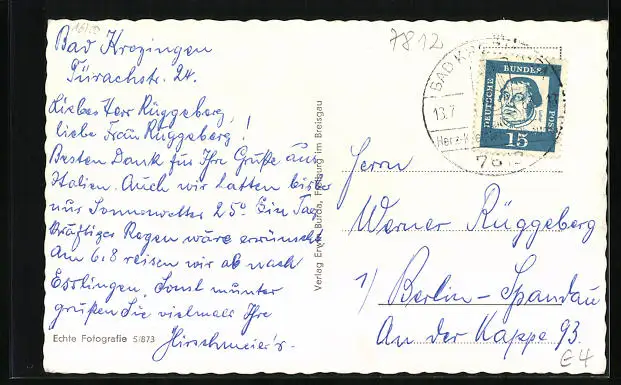 16/10
7812
Bad Krozingen
Türachstr. 24.
Liebes Herr Rüggeberg,
liebe Frau Rüggeberg!
Besten Dank für Ihre Grüße aus
Italien. Auch wir hatten bisher
nur Sonnenwetter 25° Ein Tag
kräftiger Regen wäre erwünscht
Am 6.8 reisen wir ab nach
Esslingen. Sonst munter
grüßen Sie vielmals Ihre
Hirschmeier's.
Echte Fotografie 5/873
Verlag Erwin Burda, Freiburg im Breisgau
BAD KROZINGEN
13.7
Herz-
7812
DEUTSCHE BUNDESPOST
15
Herrn
Werner Rüggeberg
1/ Berlin-Spandau
An der Kappe 93.
E4